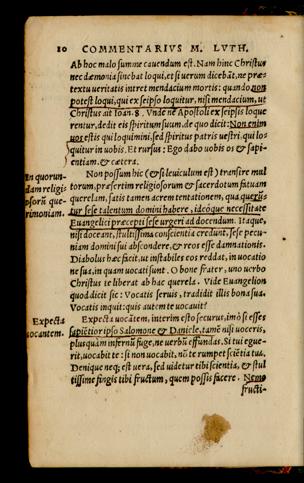 10 COMMENTARIVS M. LVTH.
Ab hoc malo summe cauendum est. Nam hinc Christus
nec dæmonia sinebat loqui, et si uerum dicebāt, ne præ-
textu ueritatis intret mendacium mortis: quando non
potest loqui, qui ex seipso loquitur, nisi mendacium, ut
Christus ait Ioan. 8. Vnde ne Apostoli ex seipsis loque
rentur, dedit eis spiritum suum, de quo dicit: Non enim
uos estis qui loquimini, sed spiritus patris uestri qui lo-
quitur in uobis. Et rursus: Ego dabo uobis os & sapi-
entiam. & cætera.
In quorun-
dam religi-
osorū que-
rimoniam.
Non possum hic (& si leuiculum est) transire mul
torum, præsertim religiosorum & sacerdotum fatuam
querelam, satis tamen acrem tentationem, qua querun-
tur sese talentum domini habere, ideóque necessitate
Euangelici præcepti sese urgeri ad docendum. Itaque,
nisi doceant, stultissima conscientia credunt, sese pecu-
niam domini sui abscondere, & reos esse damnationis.
Diabolus hæc facit, ut instabiles eos reddat, in uocatio
ne sua, in quam uocati sunt. O bone frater, uno uerbo
Christus te liberat ab hac querela. Vide Euangelion
quod dicit sic: Vocatis seruis, tradidit illis bona sua.
Vocatis inquit: quis autem te uocauit?
Expecta
uocantem.
Expecta uocātem, interim esto securus, imò si esses
sapiētior ipso Salomone & Daniele, tamē nisi uoceris,
plusquàm infernū fuge, ne uerbū effundas. Si tui egue-
rit, uocabit te: si non uocabit, nō te rumpet sciētia tua.
Denique neque est uera, sed uidetur tibi scientia, & stul
tissime fingis tibi fructum, quem possis facere. Nemo
fructi-